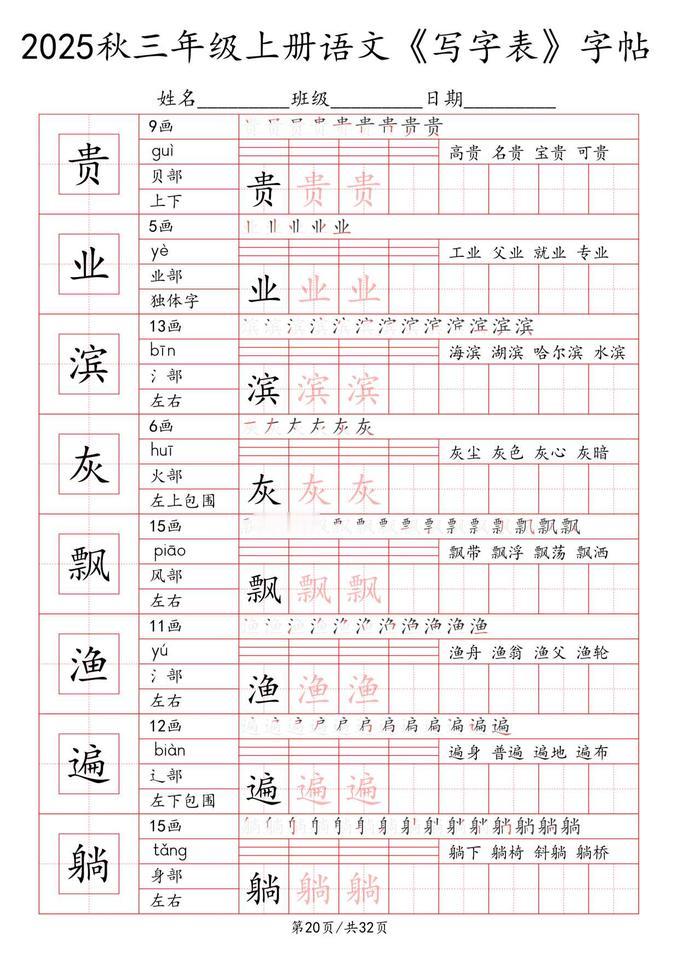 2025秋三年级上册语文《写字表》字帖
姓名_________班级_________日期_________
贵
9画
guì
高贵 名贵 宝贵 可贵
贝部
上下
贵 贵 贵
业
5画
yè
工业 父业 就业 专业
业部
独体字
业 业 业
滨
13画
bīn
海滨 湖滨 哈尔滨 水滨
氵部
左右
滨 滨 滨
灰
6画
huī
灰尘 灰色 灰心 灰暗
火部
左上包围
灰 灰 灰
飘
15画
piāo
飘带 飘浮 飘荡 飘洒
风部
左右
飘 飘 飘
渔
11画
yú
渔舟 渔翁 渔父 渔轮
氵部
左右
渔 渔 渔
遍
12画
biàn
遍身 普遍 遍地 遍布
辶部
左下包围
遍 遍 遍
躺
15画
tǎng
躺下 躺椅 斜躺 躺桥
身部
左右
躺 躺 躺
第20页/共32页